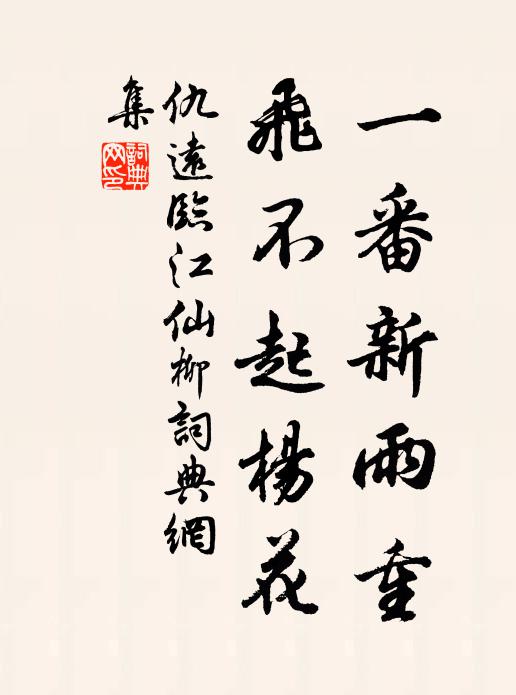 一番新雨重
飛不起楊花
仇遠臨江仙柳詞典網
集
詞典
网印